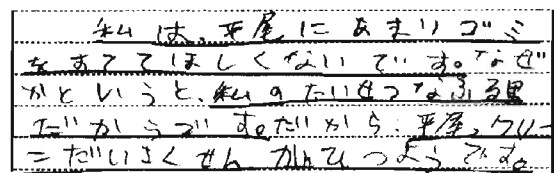 私は、平尾にあまりゴミ
をすててほしくないです。なぜ
かというと、私のたいせつなふる里
だからです。だから、平尾、クリー
ンだいさくせんがひつようです。